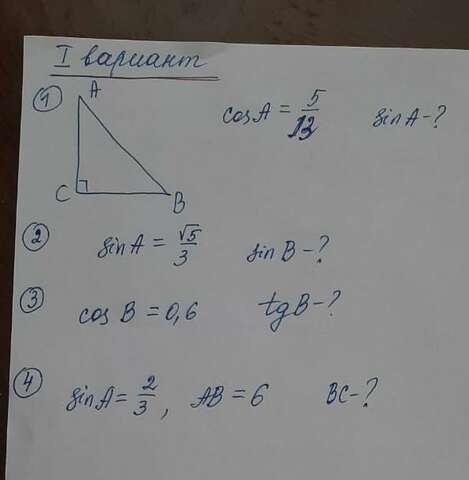 I вариант
① A C B cosA = 5/13 sinA-?
② sinA = √5/3 sinB-?
③ cosB = 0,6 tgB-?
④ sinA = 2/3, AB = 6 BC-?